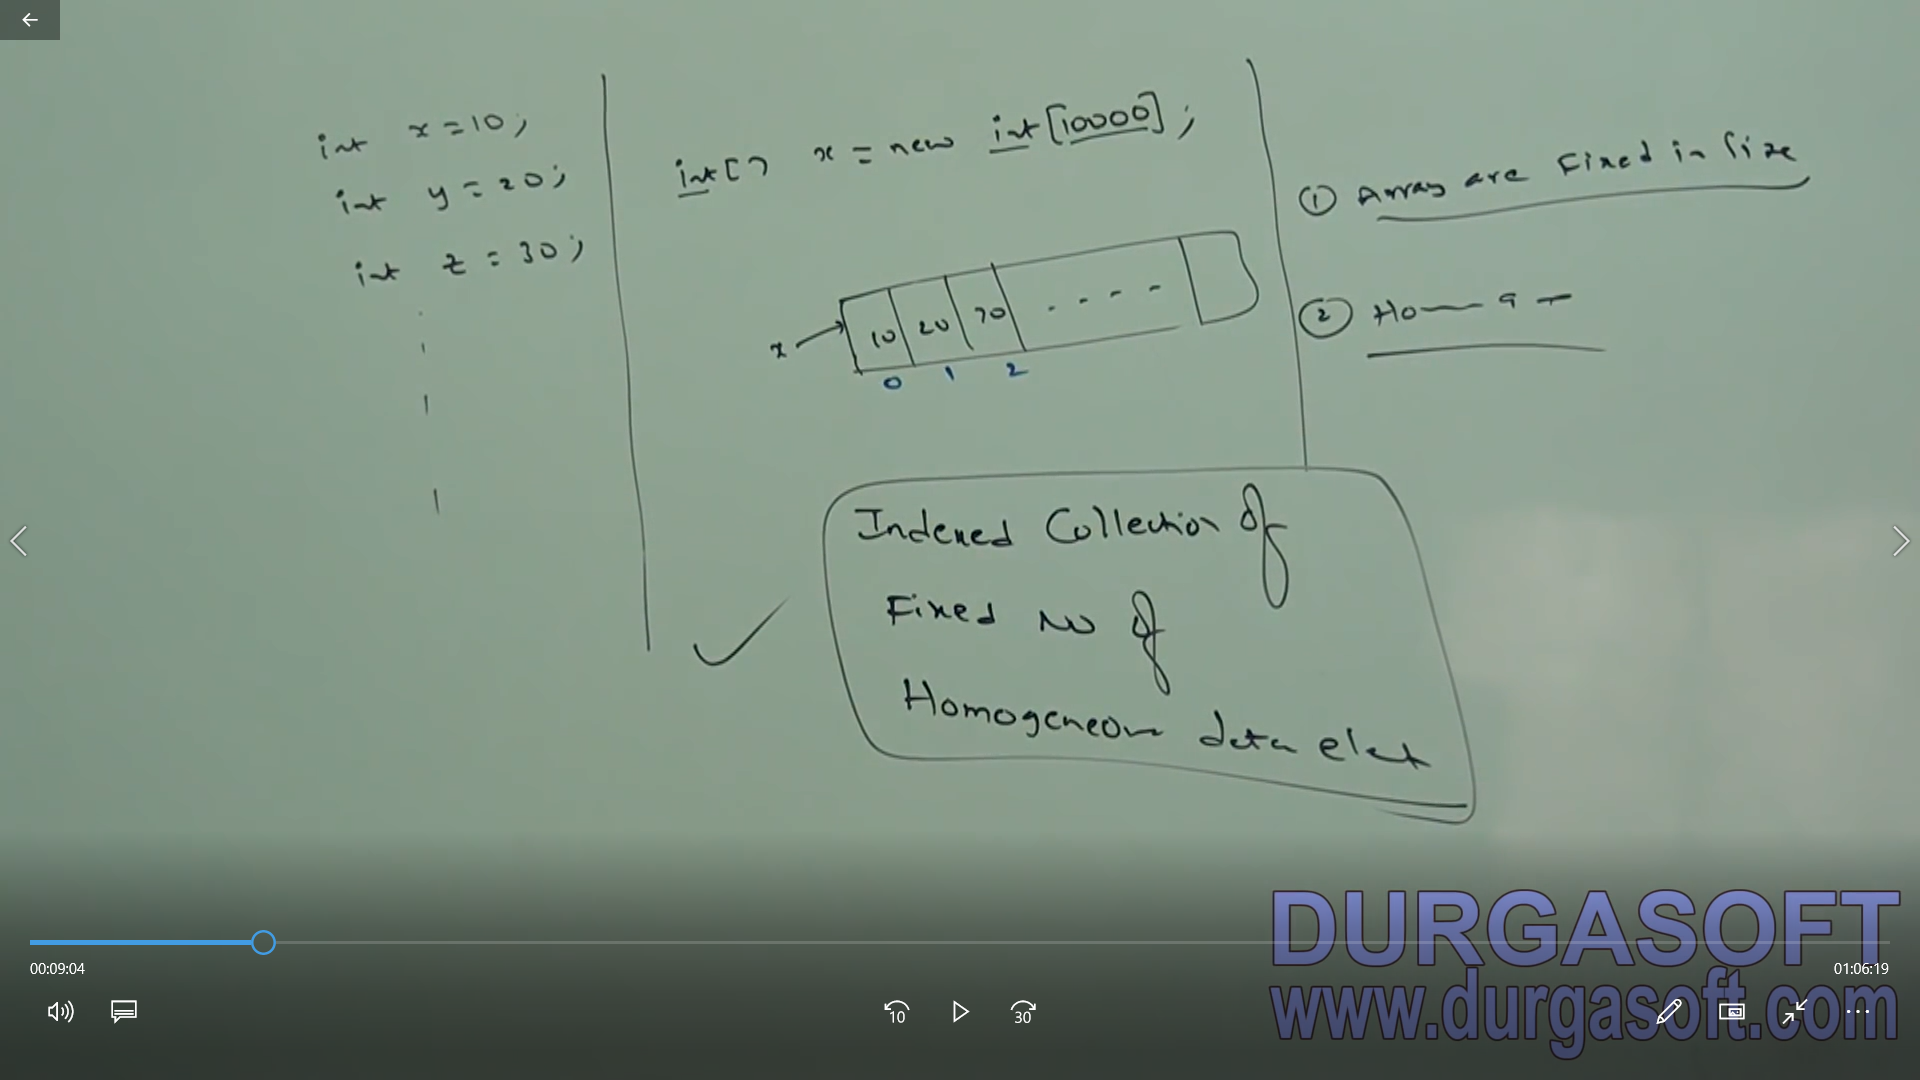 int x = 10;
int y = 20;
int z = 30;
int[] x = new int[10000];
x
10 20 70 . - - -
0 1 2
① Array are Fixed in Size
②
Indexed Collection of
Fixed No of
Homogeneous data
DURGASOFT
www.durgasoft.com
00:09:04
01:06:19
10
30